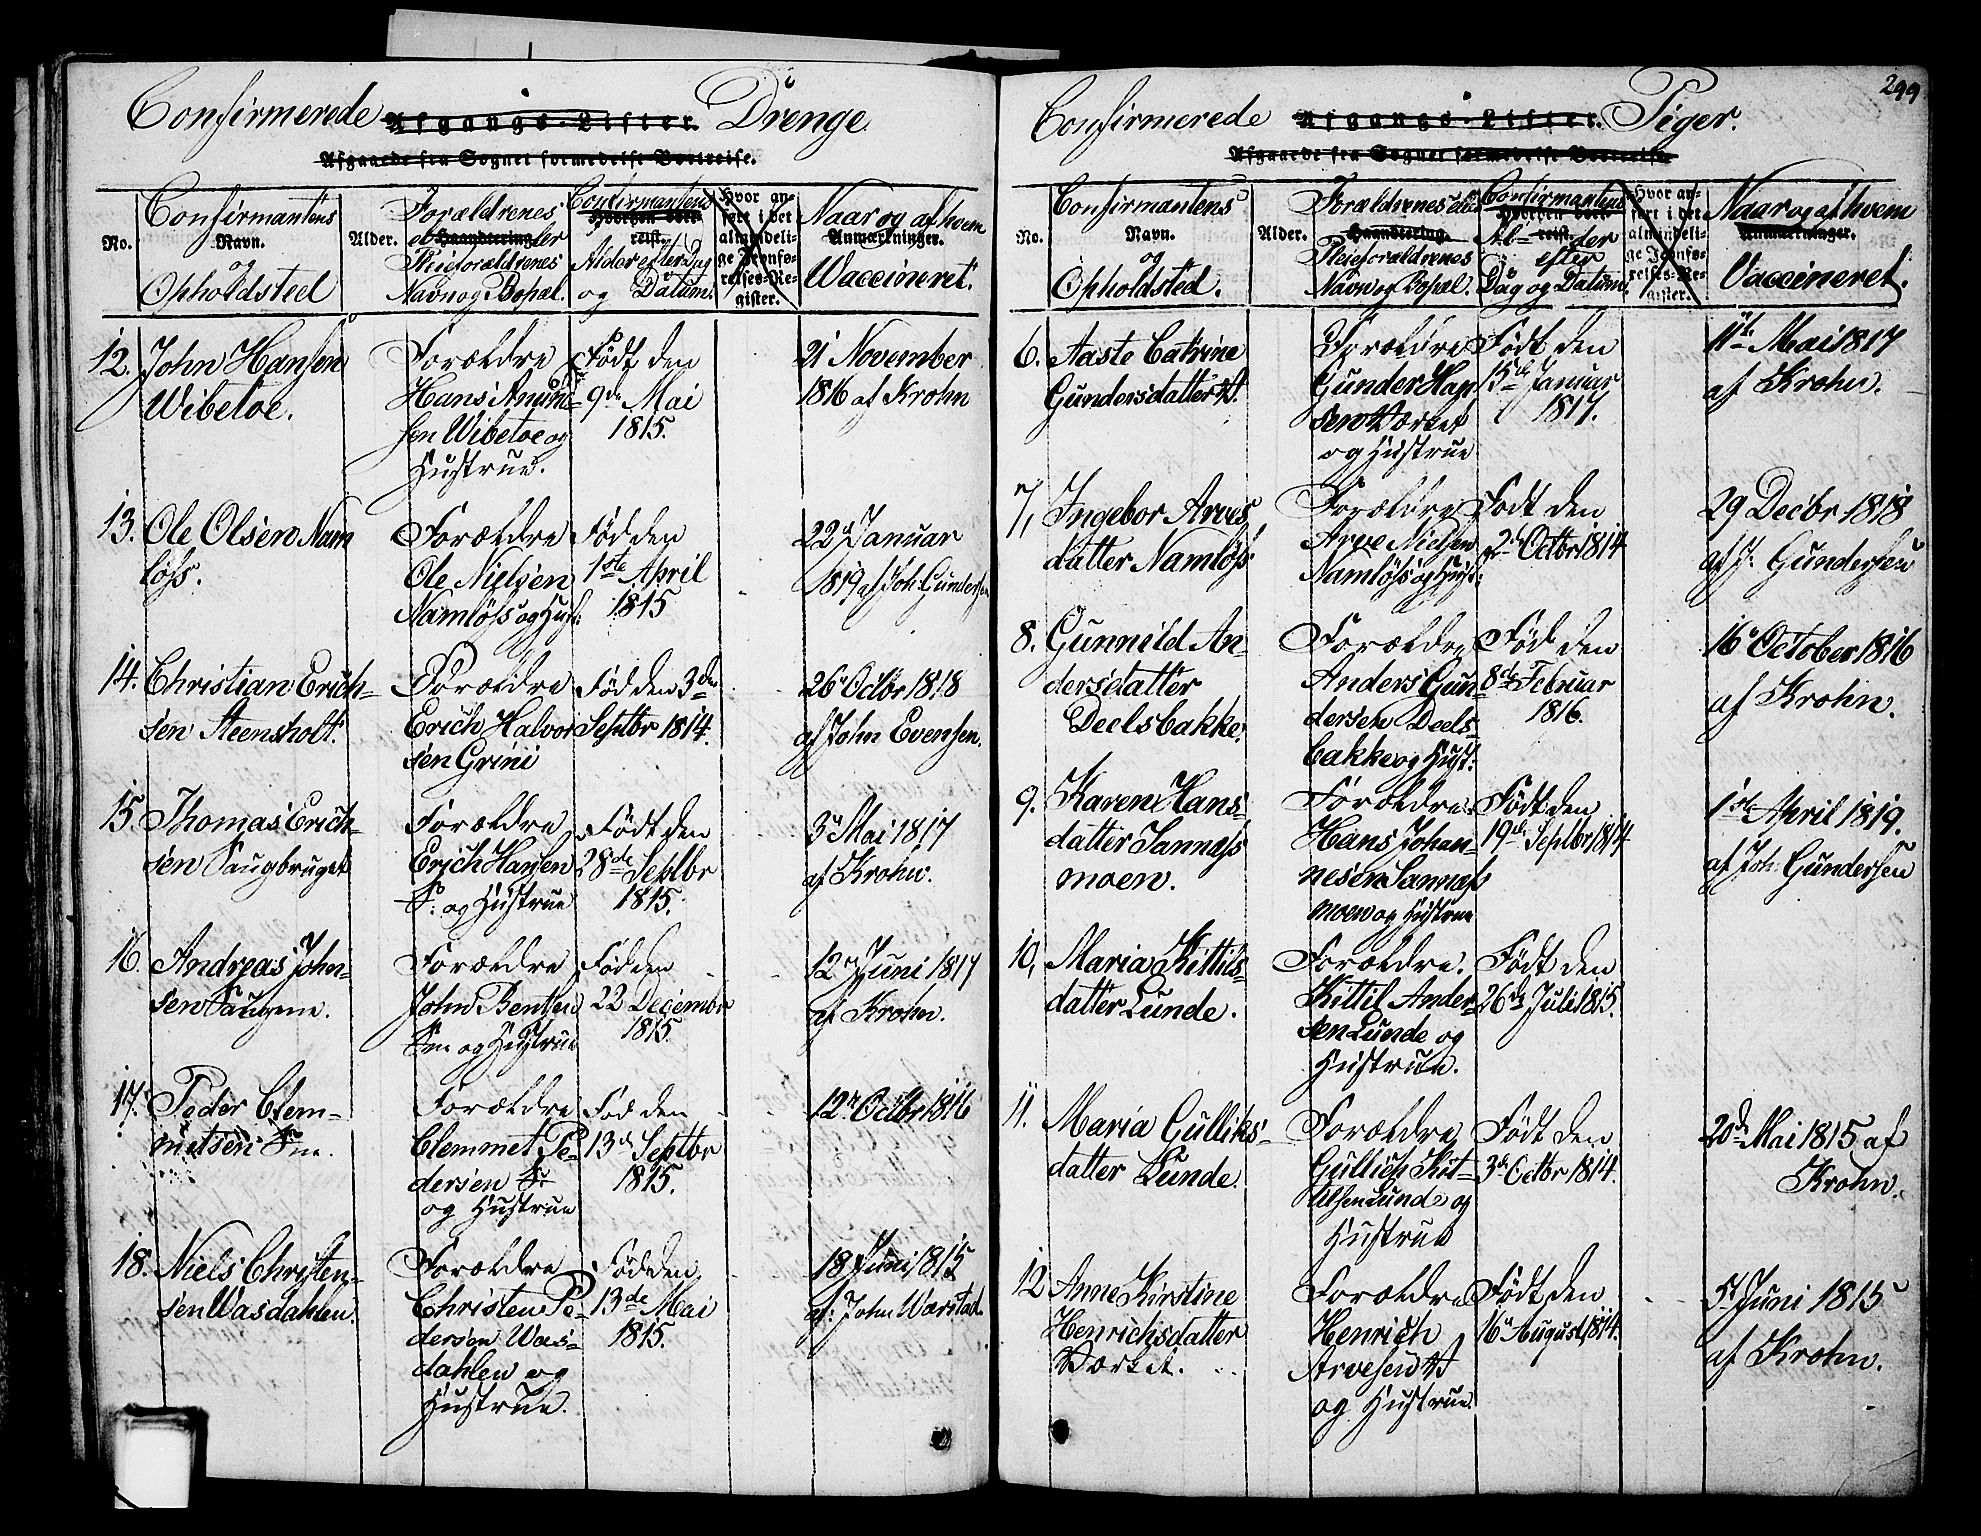 Confirmerede Afgangs-Lister. Drenge.
Afgaaede fra Sognet formedelst Bortreise.
No.
Confirmantens
Navn.
og
Opholdsted
Alder.
Forældrenes
el Haandtering ler
Pleieforældrenes
Navn og Bopæl.
Confirmantens
Hvorhen bort-
reist.
Alder efter Dag
og Datum.
Hvor an-
ført i det
almindeli-
ge Jevnfø-
relses-Re-
gister.
Naar og af hvem
Anmærkninger.
Vaccineret.
12. John Hansen
Wibetoe.
Forældre
Hans Amund-
sen Wibetoe og
Hustrue.
Født den
9de Mai
1815.
21 November
1816 af Krohn
13. Ole Olsen Nam
løss.
Forældre
Ole Nielsen
Namløss og Hust:
Fød den
1ste April
1815
22d Januar
1819 af Joh: Gundersen
14. Christian Erich-
sen Steensholt.
Forældre
Erich Halvor
sen Grini
Fød den 3den
Septbr 1814.
26 Octbr 1818
af John Evensen.
15. Thomas Erich-
sen Saugbruget
Forældre
Erich Hansen
S: og Hustrue
Født den
28de Septbr
1815.
3d Mai 1817
af Krohn.
16. Andreas John-
sen Saugene.
Forældre
John Bentsen
Sne og Hustrue
Fød den
22 Decembr
1815.
12 Juni 1817
af Krohn.
17. Peder Clem-
metsen Sne.
Forældre
Clemmet Pe-
dersen S:
og Hustrue
Fød den
13d Septbr
1815.
12 Octbr 1816
18. Niels Christen-
sen Wasdahlen.
Forældre
Christen Pe-
dersen Was-
dahlen og
Hustrue.
Fød den
13de Mai
1815.
18 Juni 1815
af: John Warstad
299
Confirmerede Afgangs-Lister. Piger.
Afgaaede fra Sognet formedelst Bortreise.
No.
Confirmantens
Navn.
og
Opholdsted.
Alder.
Forældrenes el:
Haandtering.
Pleieforældrenes
Navn og Bopæl.
Confirmantens
Hvorhen bort-
Al- reist. der
efter
Dag og Datum.
Hvor an-
ført i det
almindeli-
ge Jevnfø-
relses-Re-
gister.
Naar og af hvem
Anmærkninger.
Vaccineret.
6. Aaste Catrine
Gundersdatter V.
Forældre
Gunder Han
sen Værket
og Hustrue
Født den
15de Januar
1817.
11te Mai 1817
af Krohn.
7, Ingebor Arves
datter Namløss
Forældre
Arve Nielsen
Namløss og Hust:
Født den
2de Octbr 1814
29 Decbr 1818
af J: Gundersen
8. Gunnild An-
dersdatter
Deelsbakke.
Forældre
Anders Gun-
dersen Deels-
bakke og Hust:
Fød den
8de Februar
1816.
16 October 1816
af Krohn.
9. Karen Hans-
datter Sannæss
moen.
Forældre
Hans Johan-
nesen Sannæss
moen og Hustrue
Født den
19de Septbr 1814
1ste April 1819.
af Joh: Gundersen
10, Maria Kittils-
datter Lunde.
Forældre.
Kittil Ander-
sen Lunde og
Hustrue.
Født den
26de Juli 1815.
11. Maria Gulliks-
datter Lunde.
Forældre
Gullich Kit-
tilsen Lunde og
Hustrue
Født den
3de Octbr 1814.
20de Mai 1815 af
Krohn.
12 Anne Kirstine
Henrichsdatter
Værket.
Forældre
Henrich
Arvesen V
og Hustrue.
Født den
16 August 1814.
5te Juni 1815
af Krohn.